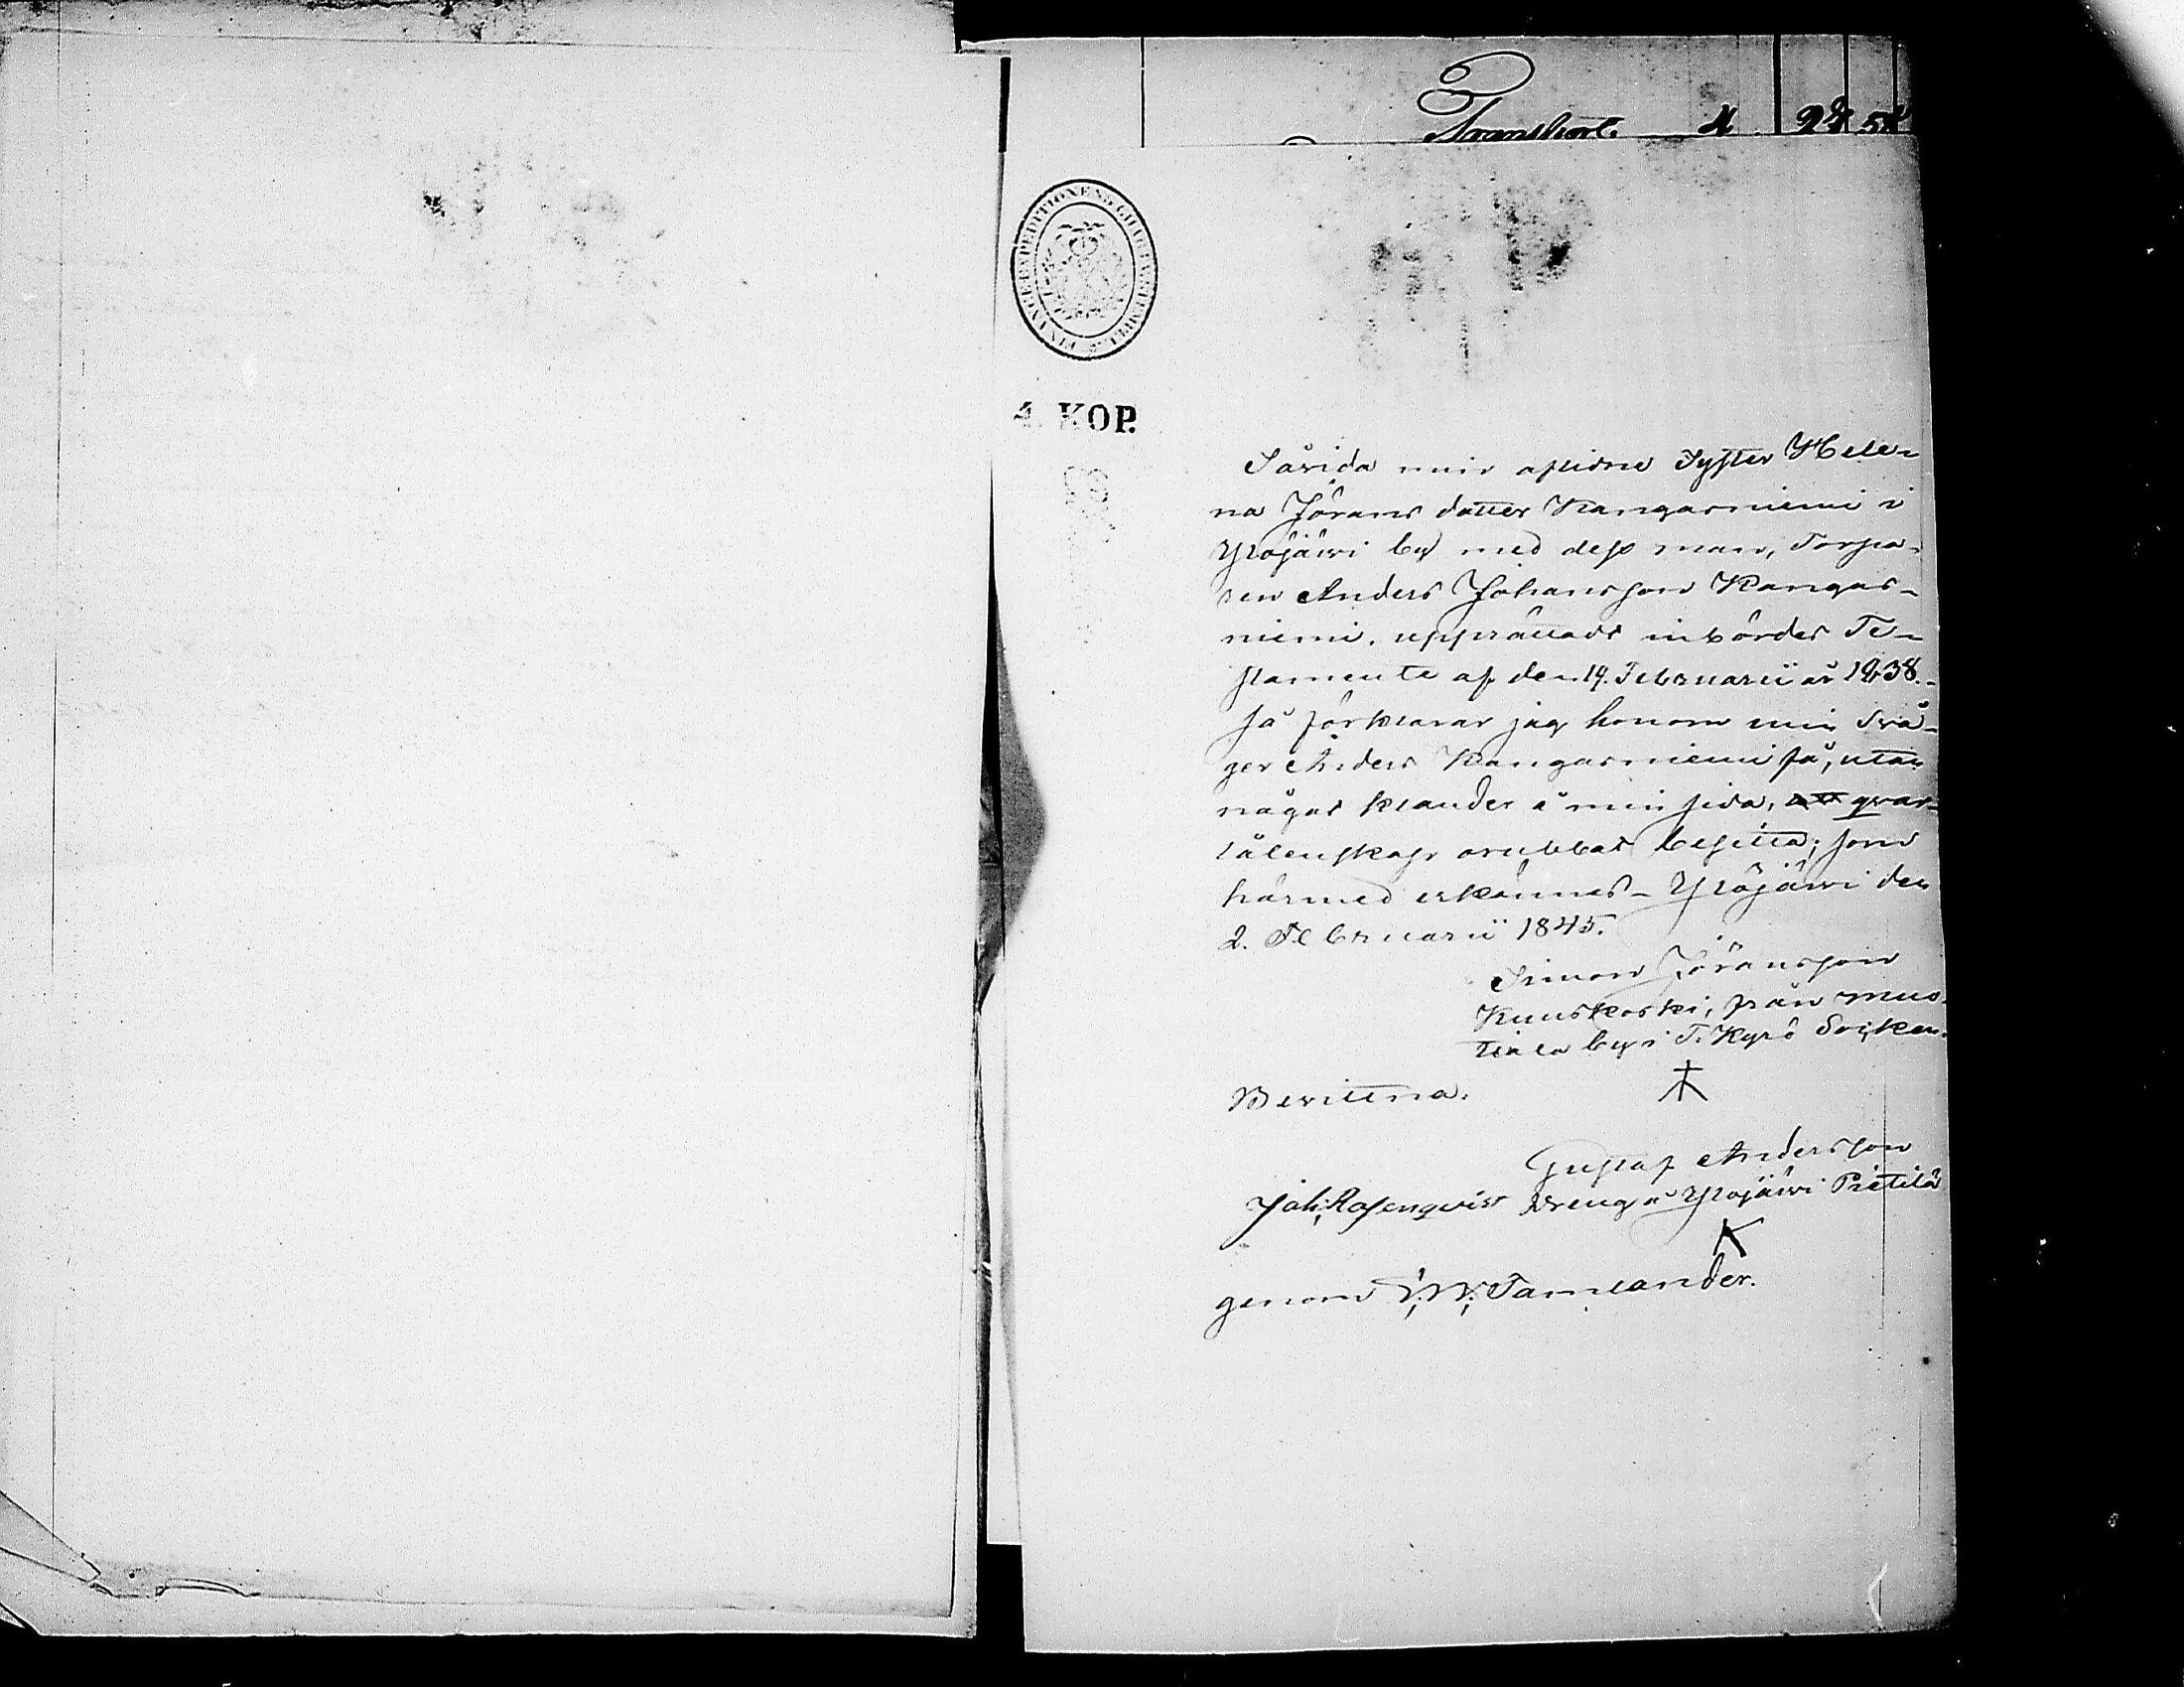 Transport 24 58
4. KOP.
Såvida min aflidne Syster Hele-
na Jörans dotter Kangasniemi i
Ylöjärvi by med dess man, Torpa-
ren Anders Johansson Kangas-
niemi, upprättadt inbördes Te-
stamente af den 14. Februarii år 1838.-
så förklarar jag honom min Svå-
ger Anders Kangasniemi få, utan
något klander å min sida, qvar-
låtenskap orubbat besitta; som
härmed erkännes - Ylöjärvi den
2. Februarii 1845.
Simon Jöransson
Kuuskoski, från Mus-
tiala by i T. Kyrö Socken.
Bevittna:
Gustaf Andersson
Joh: Rosenqvist Dreng å Ylöjärvi Pietilä
K
genom Tamlander.